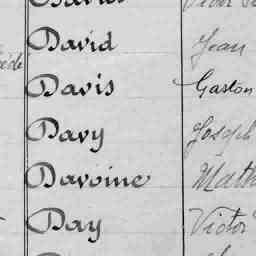 David Jean
Davis Gaston
Davy Joseph
Davoine
Day Victor